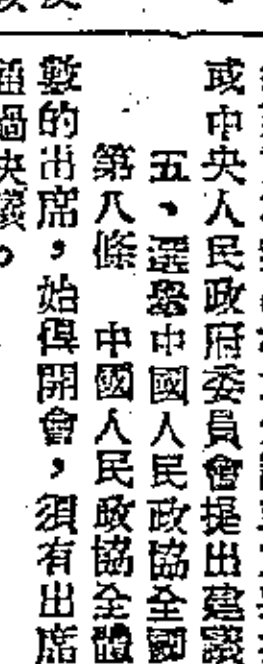 或中央人民政府委員會提出建議
五、選舉中國人民政協全國
第八條　中國人民政協全體
數的出席，始得開會，須有出席
通過決議。